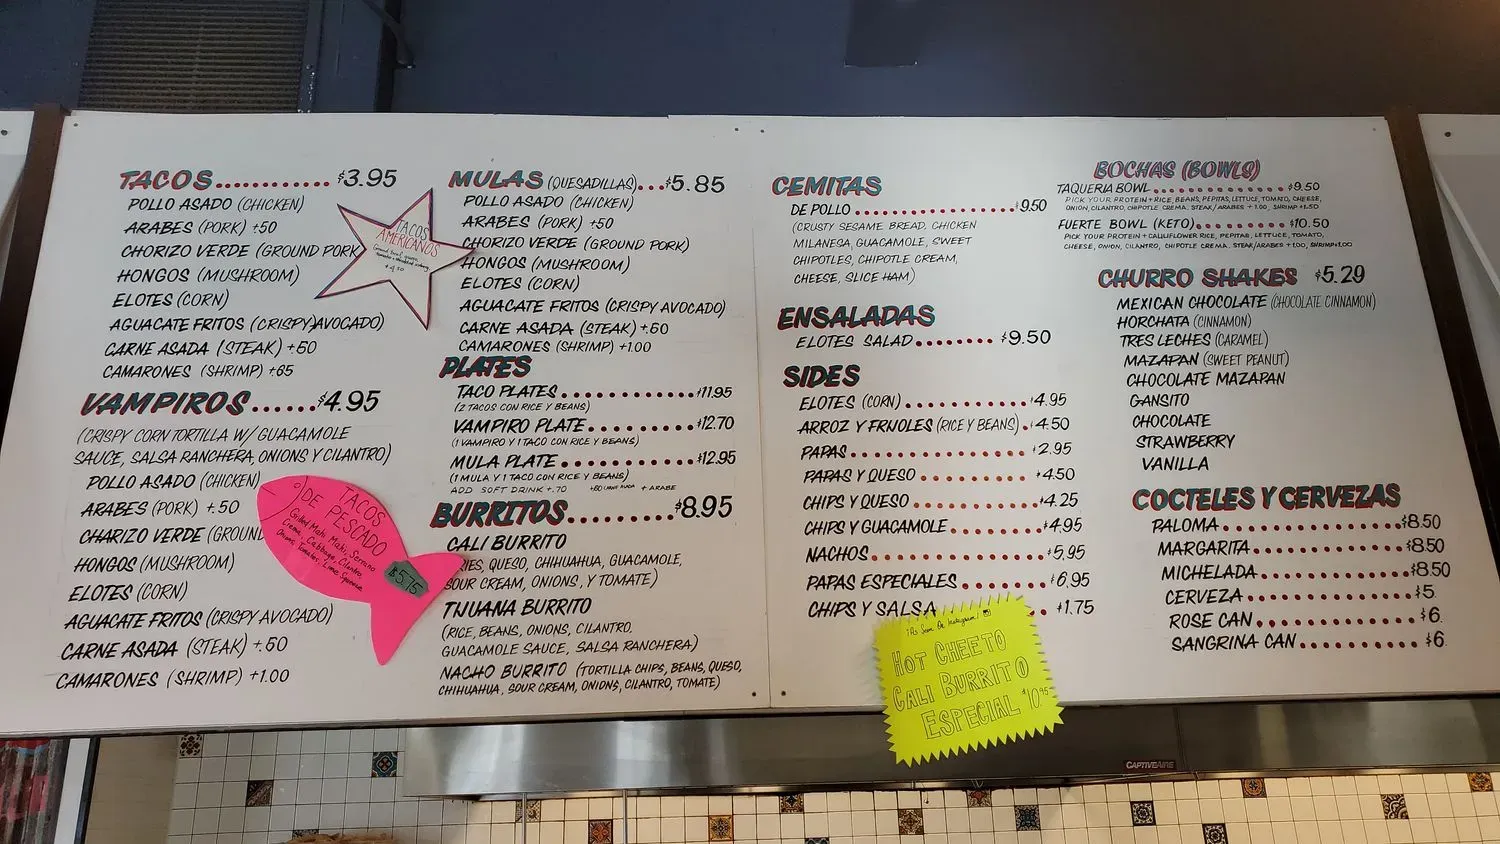 TACOS............ $3.95
POLLO ASADO (CHICKEN)
ARABES (PORK) +50
CHORIZO VERDE (GROUND PORK
HONGOS (MUSHROOM)
ELOTES (CORN)
AGUACATE FRITOS (CRISPY AVOCADO)
CARNE ASADA (STEAK) +.60
CAMARONES (SHRIMP) +65
TACOS
AMERICANOS
VAMPIROS......$4.95
(CRISPY CORN TORTILLA W/ GUACAMOLE
SAUCE, SALSA RANCHERA, ONIONS Y CILANTRO)
POLLO ASADO (CHICKEN)
ARABES (PORK) +.50
CHARIZO VERDE (GROUND
HONGOS (MUSHROOM)
ELOTES (CORN)
AGUACATE FRITOS (CRISPY AVOCADO)
CARNE ASADA (STEAK) +.50
CAMARONES (SHRIMP) +1.00
TACOS
DE PESCADO
Grilled Mahi Mahi, Serrano
Crema, Cabbage, Cilantro,
Onions, Tomatoes, Lime Squeeze
$5.75
MULAS (QUESADILLAS)...$5.85
POLLO ASADO (CHICKEN)
ARABES (PORK) +50
CHORIZO VERDE (GROUND PORK)
HONGOS (MUSHROOM)
ELOTES (CORN)
AGUACATE FRITOS (CRISPY AVOCADO)
CARNE ASADA (STEAK) +.60
CAMARONES (SHRIMP) +1.00
PLATES
TACO PLATES..............$11.95
(2 TACOS CON RICE Y BEANS)
VAMPIRO PLATE...........$12.70
(1 VAMPIRO Y 1 TACO CON RICE Y BEANS)
MULA PLATE.............$12.95
(1 MULA Y 1 TACO CON RICE Y BEANS)
ADD SOFT DRINK +.70
BURRITOS.........$8.95
CALI BURRITO
RIES, QUESO, CHIHUAHUA, GUACAMOLE,
SOUR CREAM, ONIONS, Y TOMATE)
TIJUANA BURRITO
(RICE, BEANS, ONIONS, CILANTRO,
GUACAMOLE SAUCE, SALSA RANCHERA)
NACHO BURRITO (TORTILLA CHIPS, BEANS, QUESO,
CHIHUAHUA, SOUR CREAM, ONIONS, CILANTRO, TOMATE)
CEMITAS
DE POLLO ................$9.50
(CRUSTY SESAME BREAD, CHICKEN
MILANESA, GUACAMOLE, SWEET
CHIPOTLES, CHIPOTLE CREAM,
CHEESE, SLICE HAM)
ENSALADAS
ELOTES SALAD ........ $9.50
SIDES
ELOTES (CORN)............$4.95
ARROZ Y FRIJOLES (RICE Y BEANS).$4.50
PAPAS ................$2.95
PAPAS Y QUESO ..........$4.50
CHIPS Y QUESO ..........$4.25
CHIPS Y GUACAMOLE .......$4.95
NACHOS ...............$5.95
PAPAS ESPECIALES.......$6.95
CHIPS Y SALSA . $1.75
As Seen On Instagram!
HOT CHEETO
CALI BURRITO
ESPECIAL $10.95
BOCHAS (BOWLS)
TAQUERIA BOWL................$9.50
PICK YOUR PROTEIN + RICE, BEANS, PEPITAS, LETTUCE, TOMATO, CHEESE,
ONION, CILANTRO, CHIPOTLE CREMA. STEAK/ARABES + 1.00, SHRIMP +1.50
FUERTE BOWL (KETO)............$10.50
PICK YOUR PROTEIN + CAULIFLOWER RICE, PEPITAS, LETTUCE, TOMATO,
CHEESE, ONION, CILANTRO, CHIPOTLE CREMA. STEAK/ARABES +1.00, SHRIMP+1.00
CHURRO SHAKES $5.29
MEXICAN CHOCOLATE (CHOCOLATE CINNAMON)
HORCHATA (CINNAMON)
TRES LECHES (CARAMEL)
MAZAPAN (SWEET PEANUT)
CHOCOLATE MAZAPAN
GANSITO
CHOCOLATE
STRAWBERRY
VANILLA
COCTELES Y CERVEZAS
PALOMA................$8.50
MARGARITA.............$8.50
MICHELADA.............$8.50
CERVEZA...............$5
ROSE CAN .............$6.
SANGRINA CAN...........$6
CAPTIVEAIRE